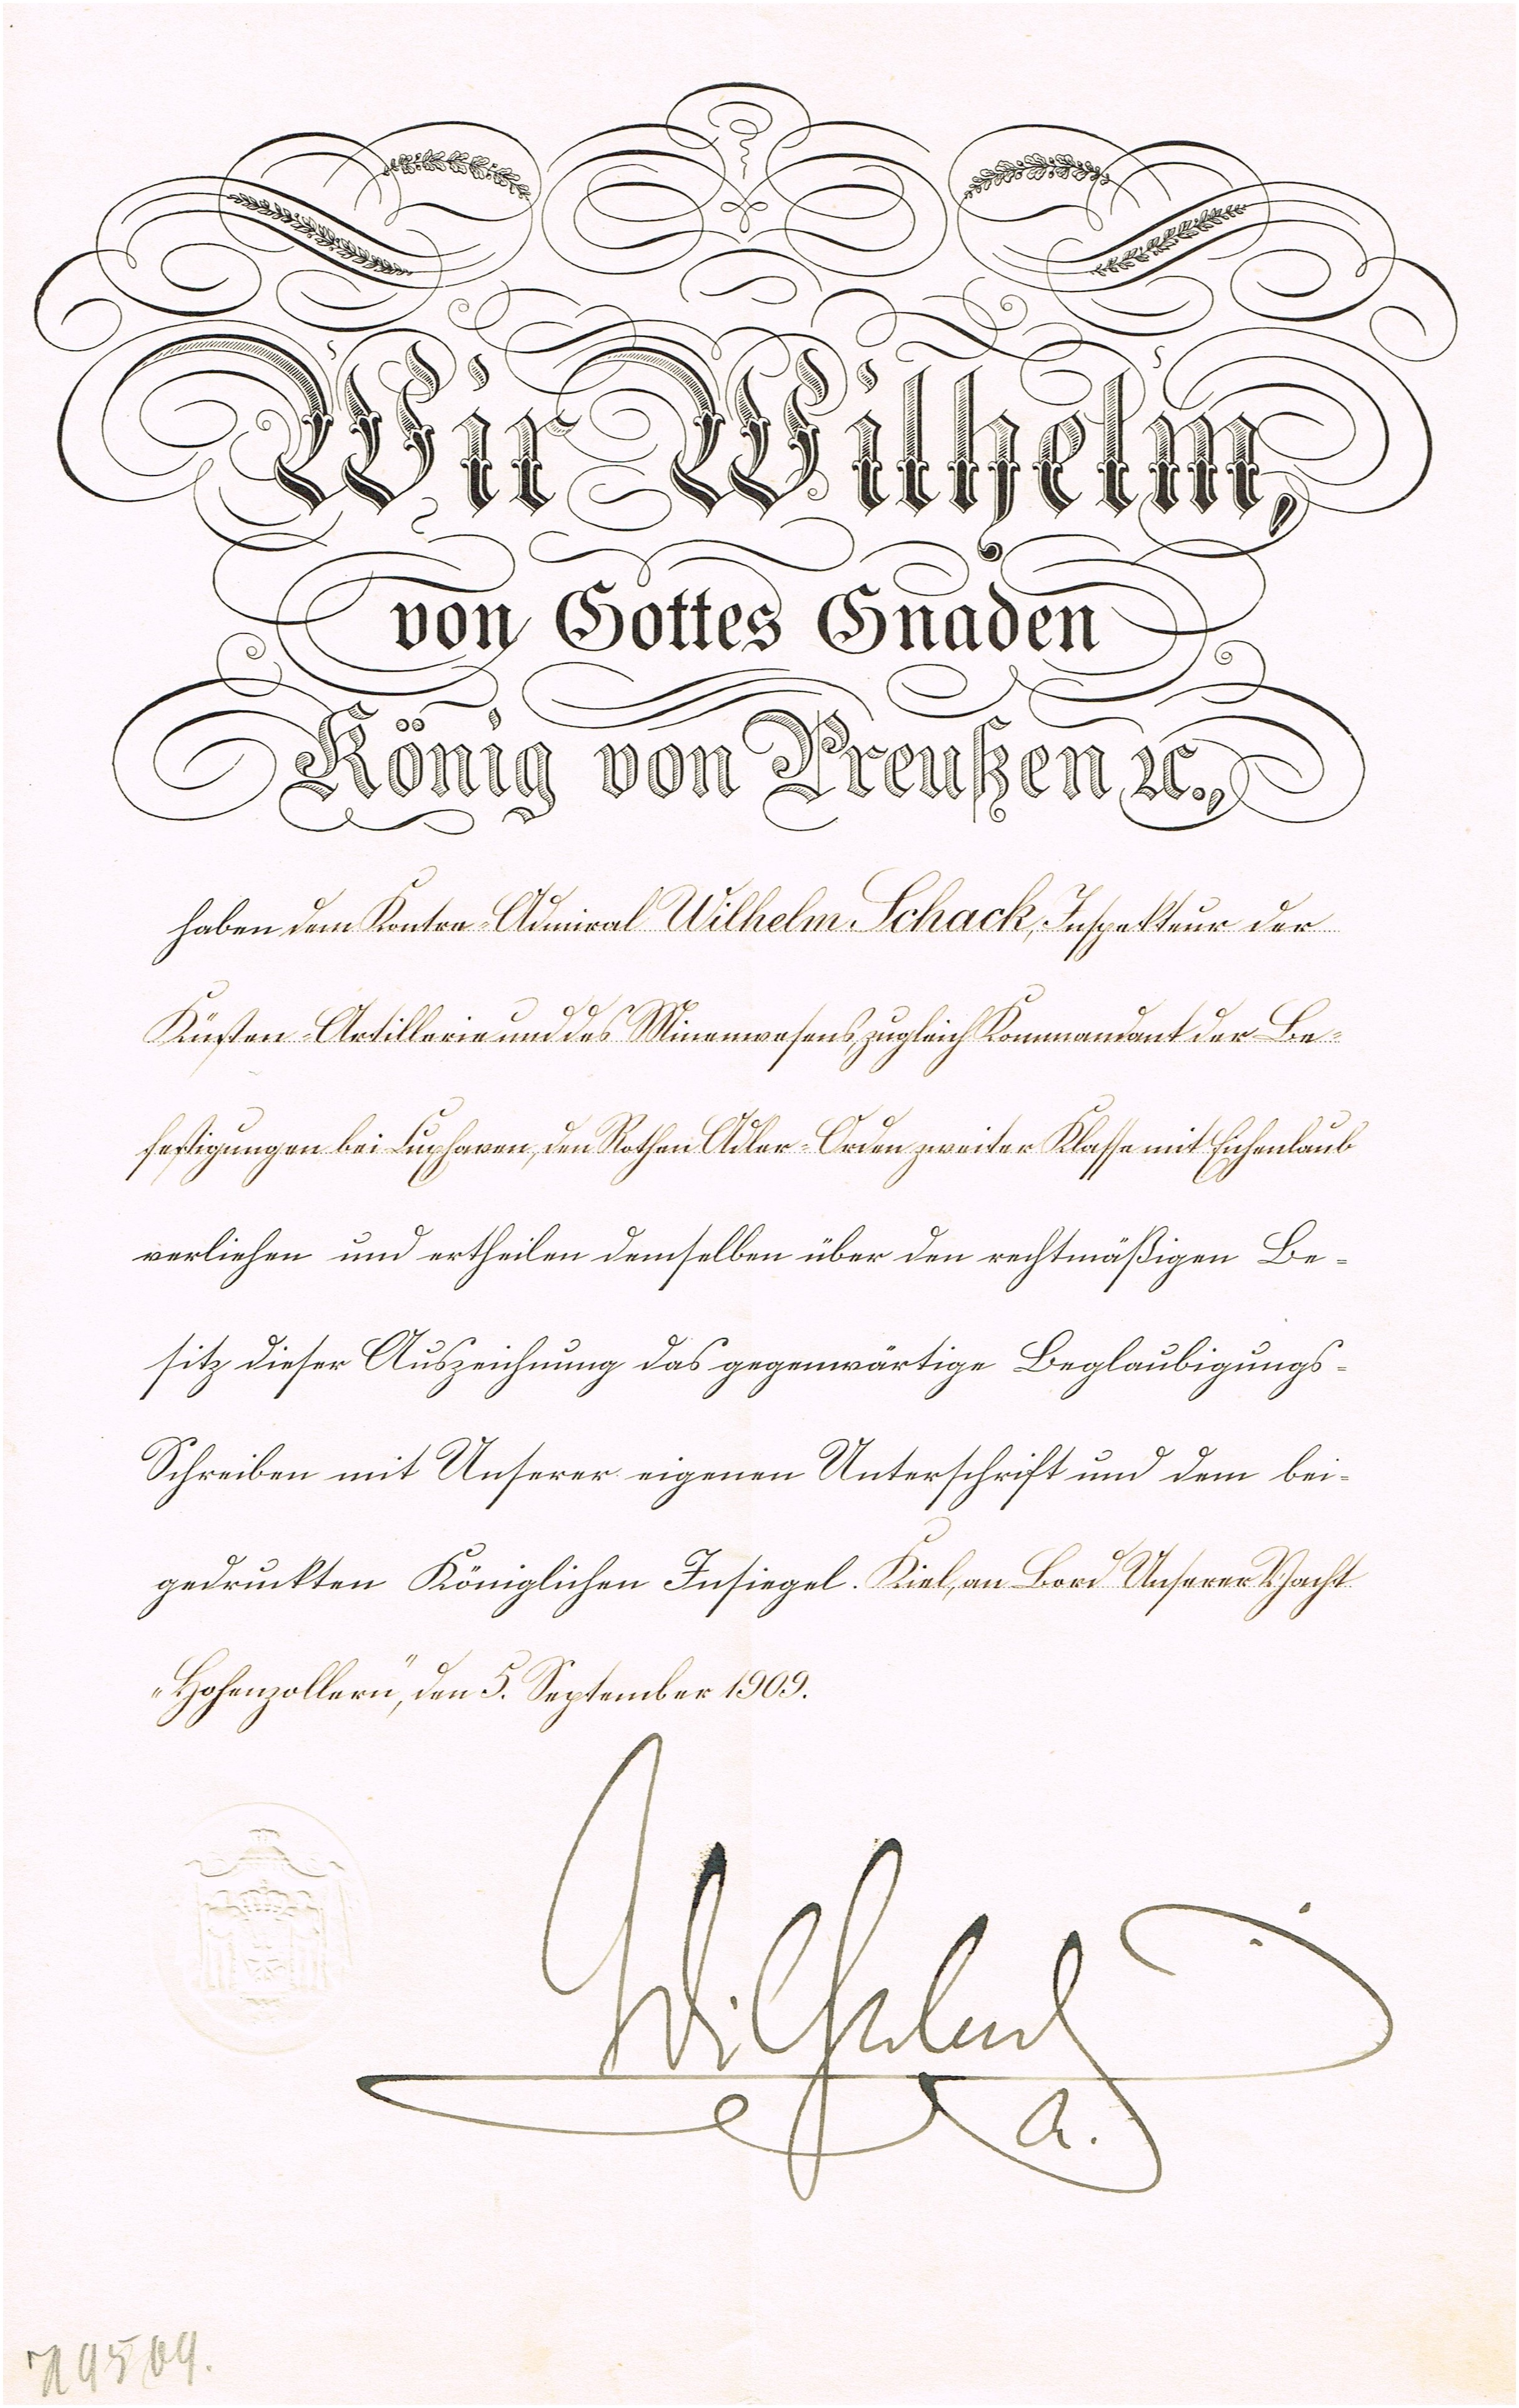 Wir Wilhelm,
von Gottes Gnaden
König von Preußen ꝛc.,
haben dem Kontre-Admiral Wilhelm Schack, Inspekteur der
Küsten-Artillerie und des Minenwesens, zugleich Kommandant der Be-
festigungen bei Cuxhaven, den Rothen Adler-Orden zweiter Klasse mit Eichenlaub
verliehen und ertheilen demselben über den rechtmäßigen Be-
sitz dieser Auszeichnung das gegenwärtige Beglaubigungs-
Schreiben mit Unserer eigenen Unterschrift und dem bei-
gedruckten Königlichen Insiegel. Kiel, an Bord Unserer Yacht
„Hohenzollern“, den 5. September 1909.
Wilhelm
R.